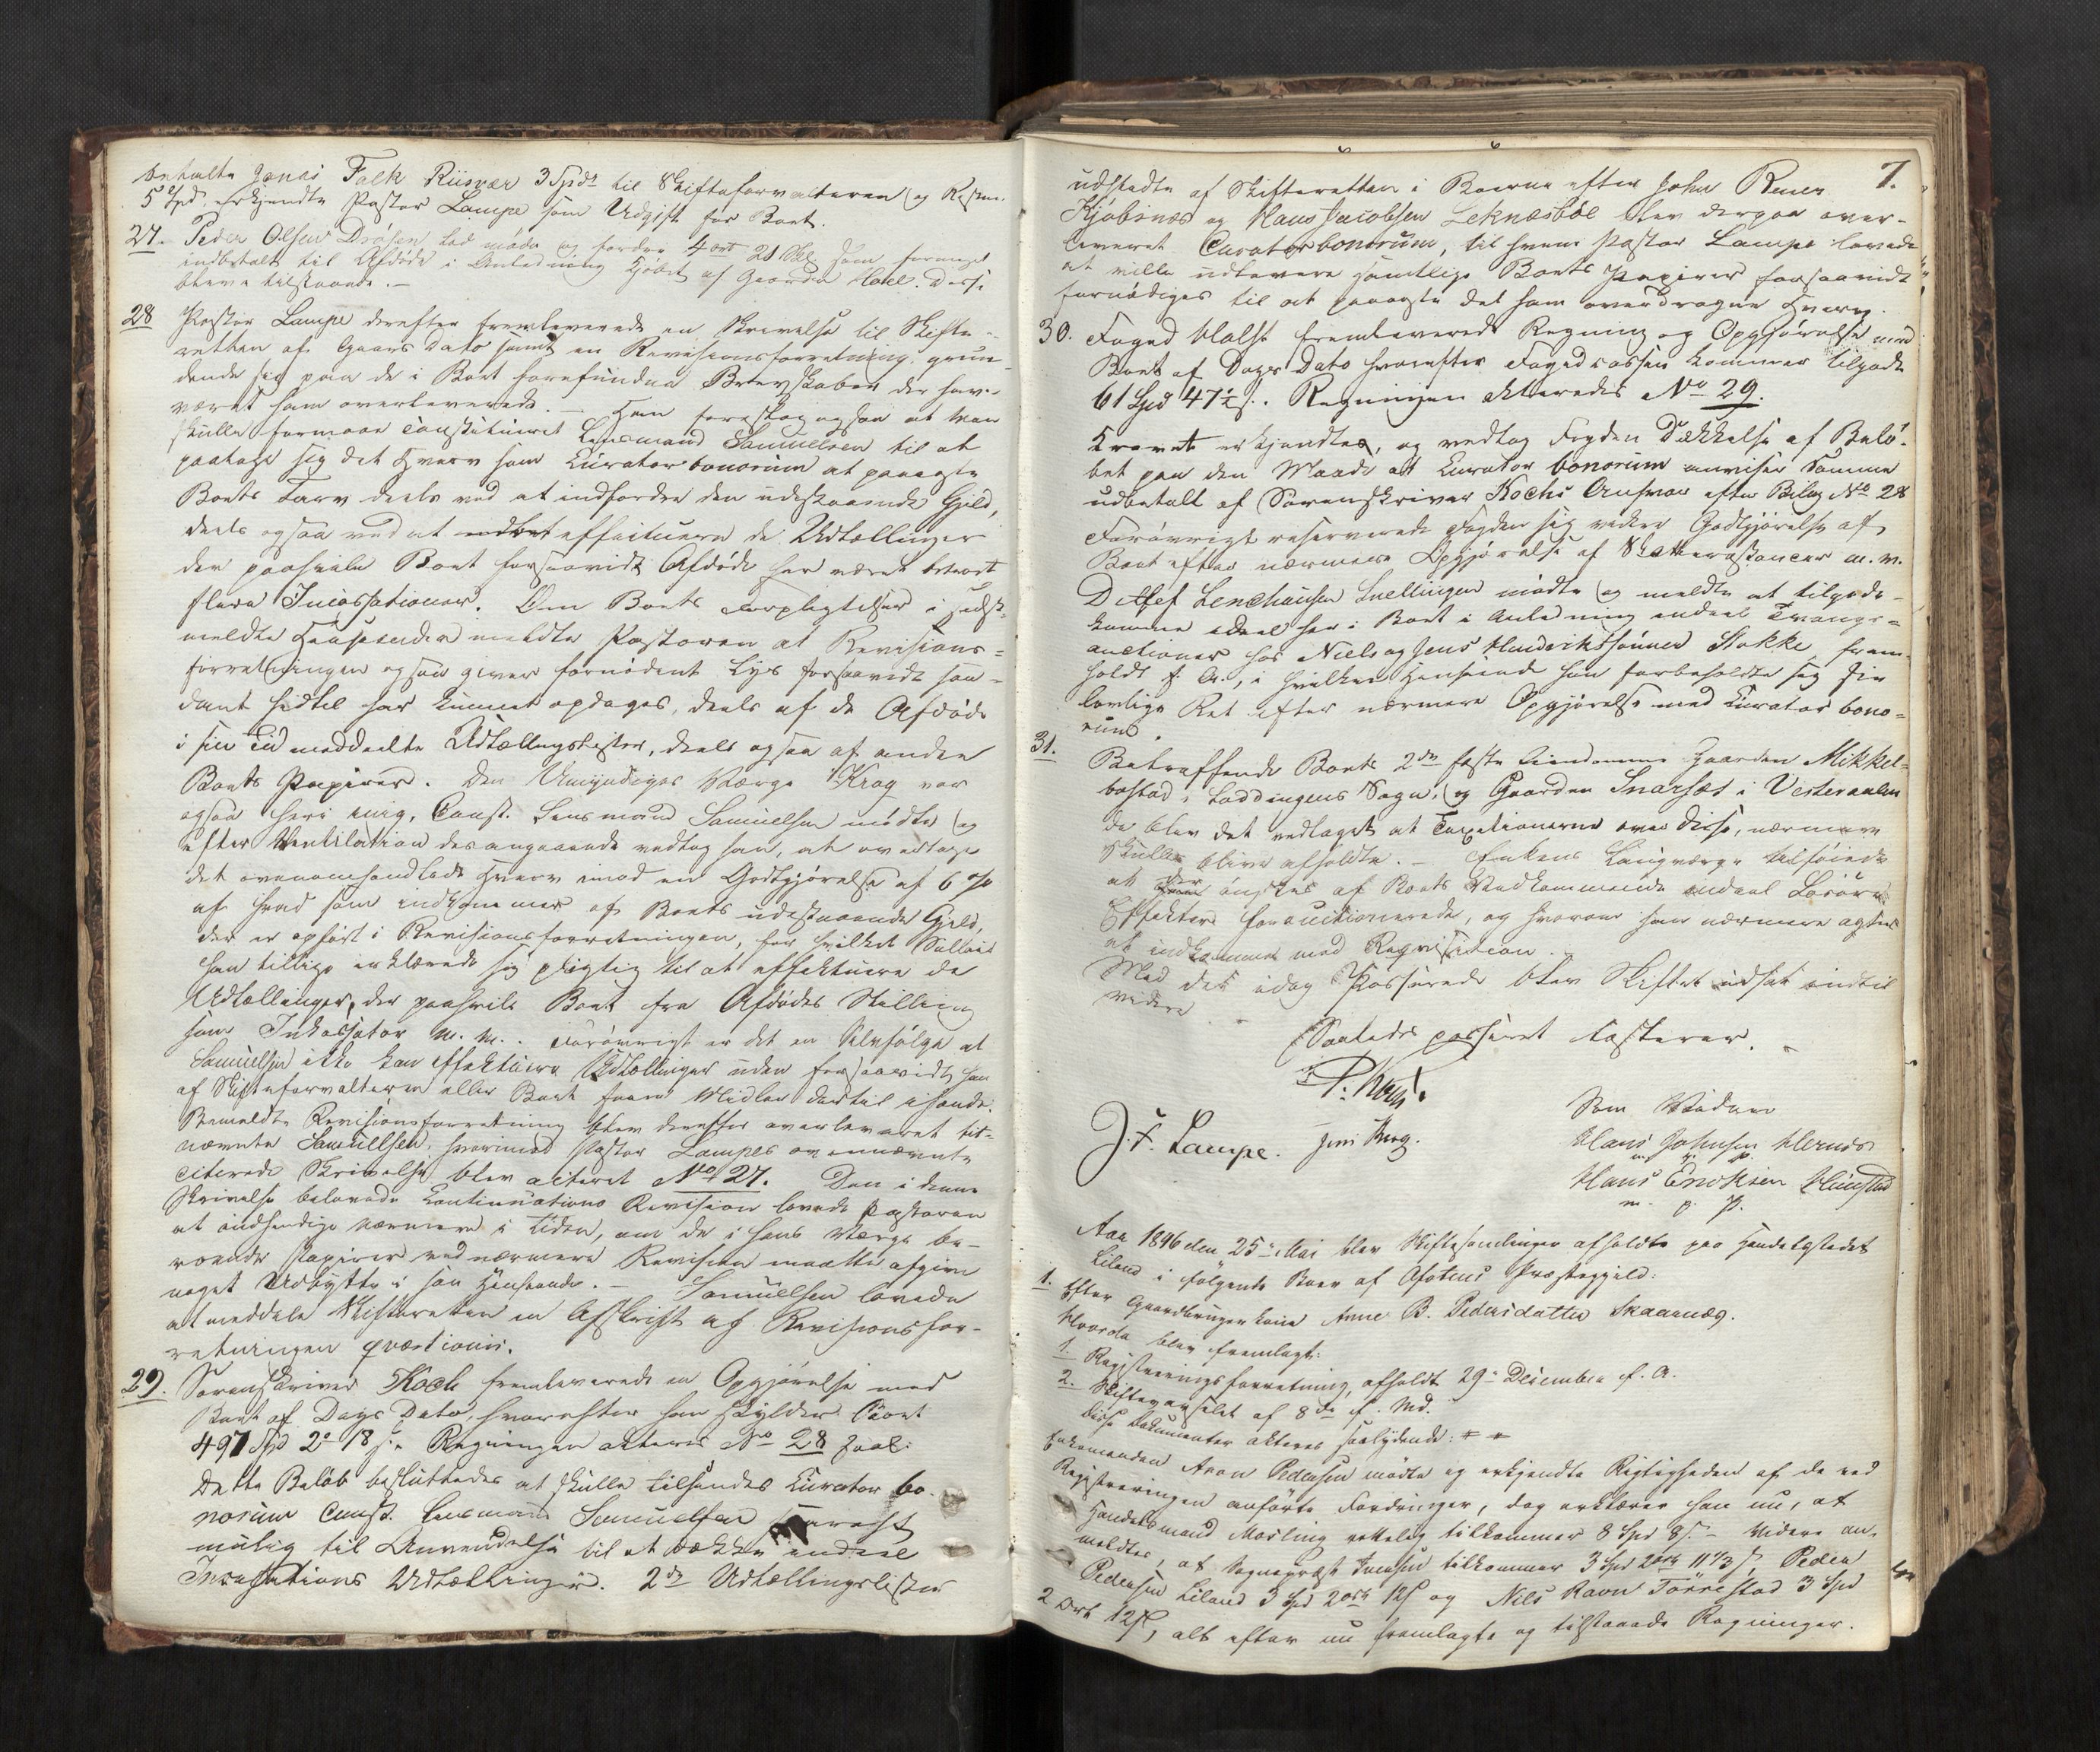 betalte Jonas Falk Riisvær 3 Spd til Skifteforvalteren og Resten
5 Spd. erkjendte Pastor Lampe som Udgift for Boet.
27. Peder Olsen Dråsen lod møde og fordre 4 ort 21 Skl som
indbetalt til Afdøde i Anledning Kjøbet af
bleve tilstaaede.
28 Pastor Lampe derefter fremleverede en Skrivelse til Skifte-
retten af Gaars Dato samt en Revisionsforretning grun-
dende sig paa de i Boet forefundne Brevskaber der have
været ham overleverede. - Han foreslog ogsaa at man
skulle formaae constitueret Lensmand Samuelsen til at
paatage sig det Hverv som Curator bonorum at paaagte
Boets Tarv deels ved at indfordre den udestaaende Gjeld,
deels ogsaa ved at effectuere de Udtællinger
der paahvile Boet forsaavidt Afdøde har været betroet
flere Incassationer. Om Boets Forpligtelser i sidst-
meldte Henseender meldte Pastoren at Revisions-
forretningen ogsaa giver fornødent Lys forsaavidt saa-
dant hidtil har kunnet opdages, deels af de Afdøde
i sin Tid meddeelte Udtællingslister, deels ogsaa af andre
Boets Papirer. Den Umyndiges Værge Krog var
ogsaa heri enig. Const. Lensmand Samuelsen mødte og
efter Ventilation desangaaende vedtog han, at overtage
det ovenomhandlede Hverv imod en Godtgjørelse af 6 %
af hvad som indkommer af Boets udestaaende Gjeld,
der er opført i Revisionsforretningen, for hvilket Sallair
han tillige erklærede sig pligtig til at effektuere de
Udtællinger, der paahvile Boet fra Afdødes Stilling
som Inkassator m. m. Forøvrigt er det en Selvfølge at
Samuelsen ikke kan effektuere Udtællinger uden forsaavidt han
af Skifteforvalteren eller Boet faaer Midler dertil ihænde.
Bemeldte Revisionsforretning blev derefter overleveret bit-
nævnte Samuelsen, hvorimod Pastor Lampes ovennævnte
citerede Skrivelse blev acteret No 27. Den i denne
Skrivelse belovede Continuations Revision lovede Pastoren
at indsendige nærmere i Tiden, om de i hans Værge be-
roende Papirer ved nærmere Revision maatte afgive
noget Udbytte i saa Henseende. - Samuelsen lovede
at meddele Skifteretten en Afskrift af Revisionsfor-
retningen qvæstionis.
29. Sorenskriver Koch fremleverede en Opgjørelse med
Boet af Dags Dato, hvorefter han skylder Boet
497 Spd 2 o 18 s. Regningen akteres No 28 
Dette Beløb besluttedes at skulle tilsendes Curator bo-
norum Const. Lensmand Samuelsen snarest
mulig til Anvendelse til at dække endeel
Incassations Udtællinger. 2de Udtællingslister
7.
udstedte af Skifteretten i Boerne efter John 
Kjøbsnæs og Hans Jacobsen Leknæsbøe blev derpaa over-
leveret Curator bonorum, til hvem Pastor Lampe lovede
at ville udlevere samtlige Boets Papirer forsaavidt
fornødiges til at paaagte det ham overdragne Hverv.
30. Foged Holst fremleverede Regning og Opgjørelse med
Boet af Dags Dato hvorefter Fogedcassen kommer tilgode
61 Spd 47½ s. Regningen akteredes No 29.
Kravet erkjendtes, og vedtog Fogden Dækkelse af Belø-
bet paa den Maade at Curator bonorum anviser Samme
udbetalt af Sorenskriver Kochs Ansvar efter Bilag No 28
Forøvrigt reserverede Fogden sig videre Godtgjørelse af
Boet efter nærmere Opgjørelse af Skatterestancer m. v.
Ditlef Lenchausen Snellingen mødte og meldte at tilgode-
komme endeel her i Boet i Anledning endeel Tvangs-
auctioner hos Niels og Jens Henderikssønner Stokke, frem-
holdt f. A., i hvilken Henseende han forbeholdte sig sin
lovlige Ret efter nærmere Opgjørelse med Curator bono-
rum.
31. Betræffende Boets 2de faste Eiendomme Gaarden Mikkel-
bostad i Loddingens Sogn, og Gaarden Snarset i Vesteraalen
da blev det vedtaget at Taxationerne over disse, nærmere
skulle blive afholdte. - Enkens Laugværge tilføiede
at der ønskes af Boets Vedkommende endeel Løsøre
Effekter forauctionerede, og hvorom han nærmere agter
at indkomme med Reqvisition.
Med det idag Passerede blev Skiftet udsat indtil
videre
Saaledes passeret testerer.
P. Koch.
J. F. Lampe. Jens Krog.
Som Vidner
Hans Johnsen Hernæs
m. p. P.
Hans Enoksen
m. p. P.
Aar 1846 den 25de Mai blev Skiftesamlinger afholdte paa Handelsstedet
Liland i følgende Boer af Ofotens Præstegjeld:
1. Efter Gaardbrugerkone Anne B. Pedersdatter Skaarnæs.
Hvorda blev fremlagt:
1. Registreringsforretning, afholdt 29de December f. A.
2. Skiftevarselet af 8de f. Md.
Disse Dokumenter akteres saalydende:
Enkemanden Aron Pedersen mødte og erkjendte Rigtigheden af de ved
Registreringen anførte Fordringer, dog erklærer han nu, at
Handelsmand Mosling rettelig tilkommer 8 Spd 8 s. - Videre an-
meldtes, at Sognepræst Jensen tilkommer 3 Spd 2 ort 11 1/3 s, Peder
Pedersen Liland 3 Spd 2 ort 12 s og Nils Ravn Tørrestad 3 Spd
2 Ort 12 s, alt efter nu fremlagte og tilstaaede Regninger.